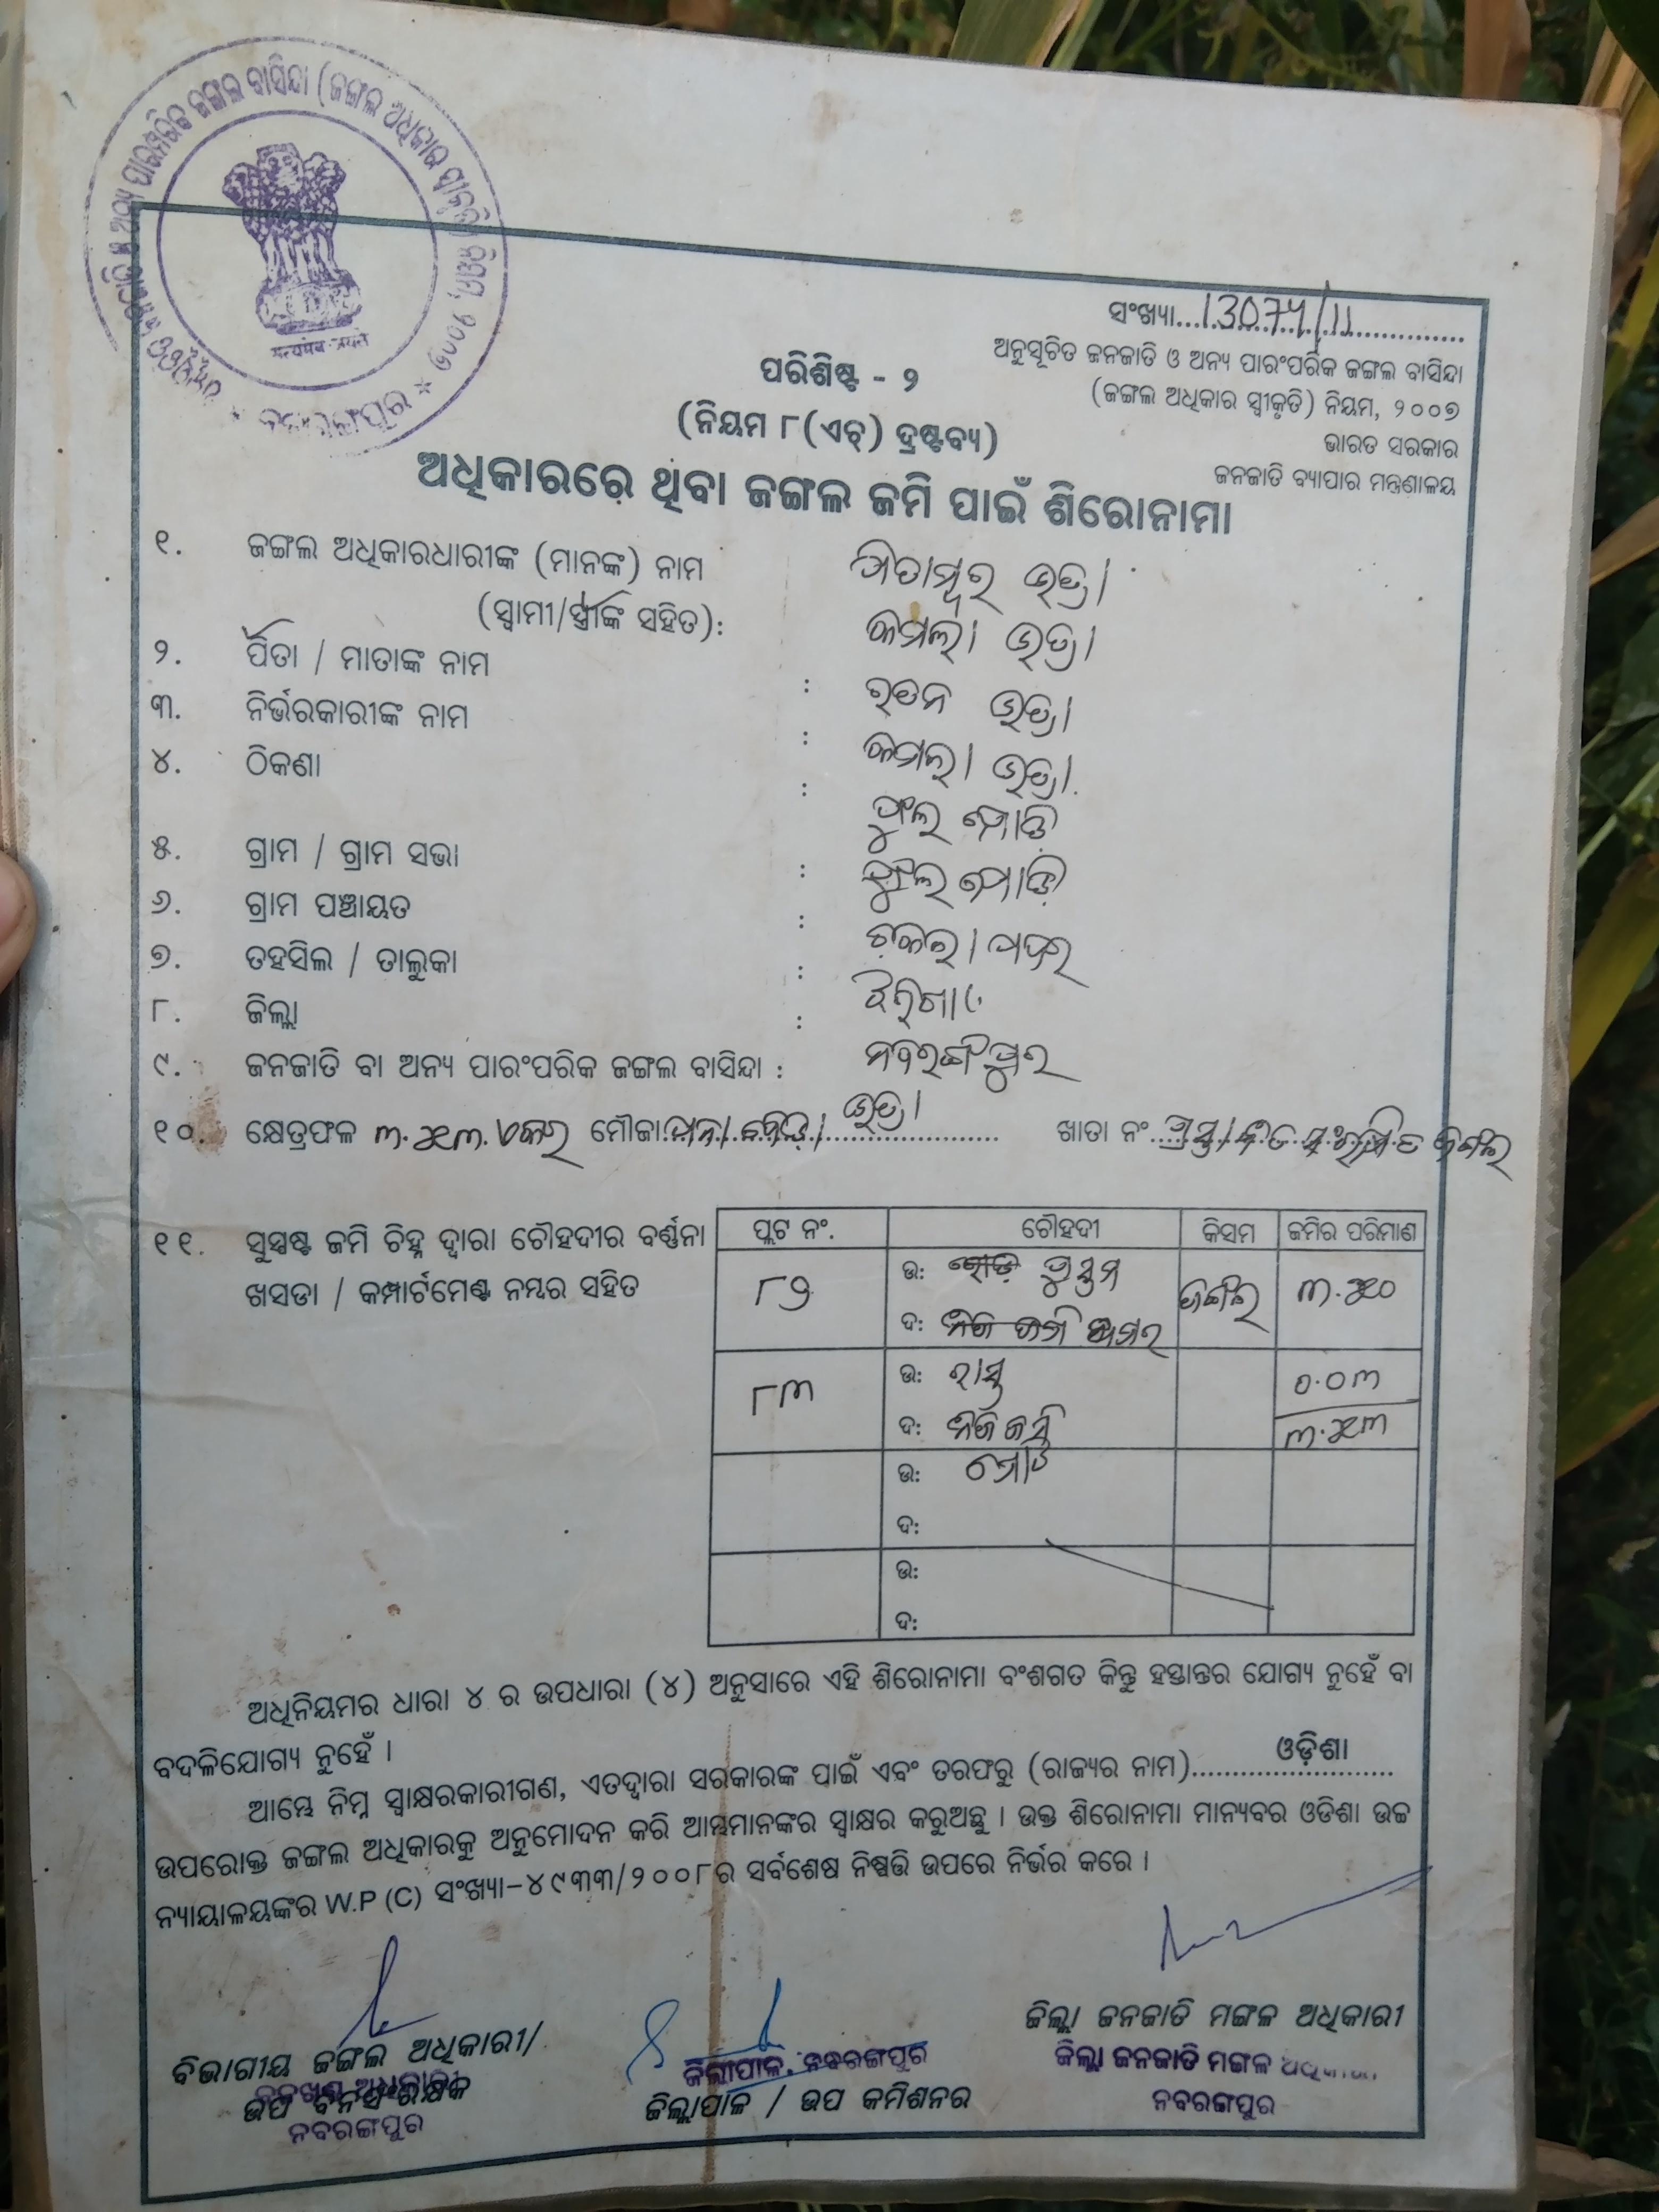 ସଂଖ୍ୟା...13074/11
ଅନୁସୂଚିତ ଜନଜାତି ଓ ଅନ୍ୟ ପାରଂପରିକ ଜଙ୍ଗଲ ବାସିନ୍ଦା
(ଜଙ୍ଗଲ ଅଧିକାର ସ୍ୱୀକୃତି) ନିୟମ, ୨୦୦୭
ଭାରତ ସରକାର
ଜନଜାତି ବ୍ୟାପାର ମନ୍ତ୍ରଣାଳୟ
ପରିଶିଷ୍ଟ - ୨
(ନିୟମ ୮(ଏଚ୍) ଦ୍ରଷ୍ଟବ୍ୟ)
ଅଧିକାରରେ ଥିବା ଜଙ୍ଗଲ ଜମି ପାଇଁ ଶିରୋନାମା
୧. ଜଙ୍ଗଲ ଅଧିକାରଧାରୀଙ୍କ (ମାନଙ୍କ) ନାମ ପିତାମ୍ବର ଭତ୍ରା
(ସ୍ୱାମୀ/ସ୍ତ୍ରୀଙ୍କ ସହିତ): କମଲା ଭତ୍ରା
୨. ପିତା / ମାତାଙ୍କ ନାମ : ରତନ ଭତ୍ରା
୩. ନିର୍ଭରକାରୀଙ୍କ ନାମ : କମଲା ଭତ୍ରା
୪. ଠିକଣା : ଫୁଲ
୫. ଗ୍ରାମ / ଗ୍ରାମ ସଭା : ଫୁଲ
୬. ଗ୍ରାମ ପଞ୍ଚାୟତ :
୭. ତହସିଲ / ତାଲୁକା : ଝରିଗାଁ
୮. ଜିଲ୍ଲା : ନବରଙ୍ଗପୁର
୯. ଜନଜାତି ବା ଅନ୍ୟ ପାରଂପରିକ ଜଙ୍ଗଲ ବାସିନ୍ଦା : ଭତ୍ରା
୧୦. କ୍ଷେତ୍ରଫଳ ୩.୫୩ ଏକର ମୌଜା ଖାତା ନଂ ପ୍ରସ୍ତାବିତ ସଂରକ୍ଷିତ ଜଙ୍ଗଲ
୧୧. ସୁସ୍ପଷ୍ଟ ଜମି ଚିହ୍ନ ଦ୍ୱାରା ଚୌହଦୀର ବର୍ଣ୍ଣନା
ଖସଡା / କମ୍ପାର୍ଟମେଣ୍ଟ ନମ୍ବର ସହିତ
ପ୍ଲଟ ନଂ. ଚୌହଦୀ କିସମ ଜମିର ପରିମାଣ
୮୨ ଉ: ଜଙ୍ଗଲ ୩.୫୦
ଦ:
୮୩ ଉ: ରାସ୍ତା ୦.୦୩
ଦ: ନିଜ ଜମି ୩.୫୩
ଉ: ମୋଟ
ଦ:
ଉ:
ଦ:
ଅଧିନିୟମର ଧାରା ୪ ର ଉପଧାରା (୪) ଅନୁସାରେ ଏହି ଶିରୋନାମା ବଂଶଗତ କିନ୍ତୁ ହସ୍ତାନ୍ତର ଯୋଗ୍ୟ ନୁହେଁ ବା
ବଦଳିଯୋଗ୍ୟ ନୁହେଁ ।
ଆମ୍ଭେ ନିମ୍ନ ସ୍ୱାକ୍ଷରକାରୀଗଣ, ଏତଦ୍ୱାରା ସରକାରଙ୍କ ପାଇଁ ଏବଂ ତରଫରୁ (ରାଜ୍ୟର ନାମ)......ଓଡ଼ିଶା......
ଉପରୋକ୍ତ ଜଙ୍ଗଲ ଅଧିକାରକୁ ଅନୁମୋଦନ କରି ଆମ୍ଭମାନଙ୍କର ସ୍ୱାକ୍ଷର କରୁଅଛୁ । ଉକ୍ତ ଶିରୋନାମା ମାନ୍ୟବର ଓଡିଶା ଉଚ୍ଚ
ନ୍ୟାୟାଳୟଙ୍କର W.P (C) ସଂଖ୍ୟା-୪୯୩୩/୨୦୦୮ର ସର୍ବଶେଷ ନିଷ୍ପତ୍ତି ଉପରେ ନିର୍ଭର କରେ ।
ବିଭାଗୀୟ ଜଙ୍ଗଲ ଅଧିକାରୀ/
ଉପ ବନସଂରକ୍ଷକ
ନବରଙ୍ଗପୁର
ଜିଲ୍ଲାପାଳ, ନବରଙ୍ଗପୁର
ଜିଲ୍ଲାପାଳ / ଉପ କମିଶନର
ଜିଲ୍ଲା ଜନଜାତି ମଙ୍ଗଳ ଅଧିକାରୀ
ଜିଲ୍ଲା ଜନଜାତି ମଙ୍ଗଳ ଅଧିକାରୀ
ନବରଙ୍ଗପୁର